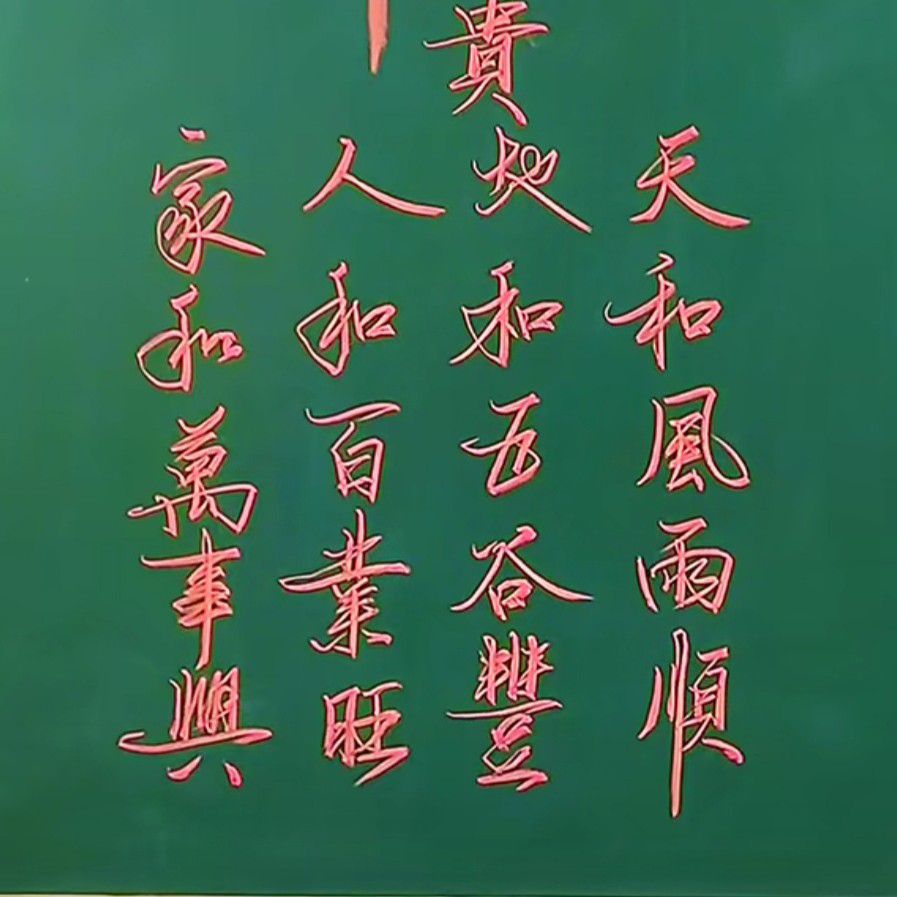 貴
天和風雨順
地和五谷豐
人和百業旺
家和萬事興